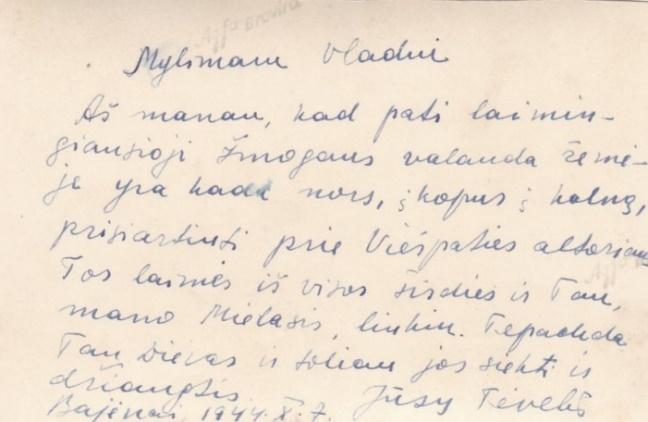 Mylimam Vladui
Aš manau, kad pati laimin-
giausioji žmogaus valanda žemė-
je yra kada nors, įkopus į kalną,
prisiartinti prie Viešpaties altoriaus
Tos laimės iš visos širdies ir Tau,
mano Mielasis, linkiu. Tepadeda
Tau Dievas ir toliau jos siekti ir
džiaugtis
Jūsų Tėvelis
Bajėnai, 1944.X.7.